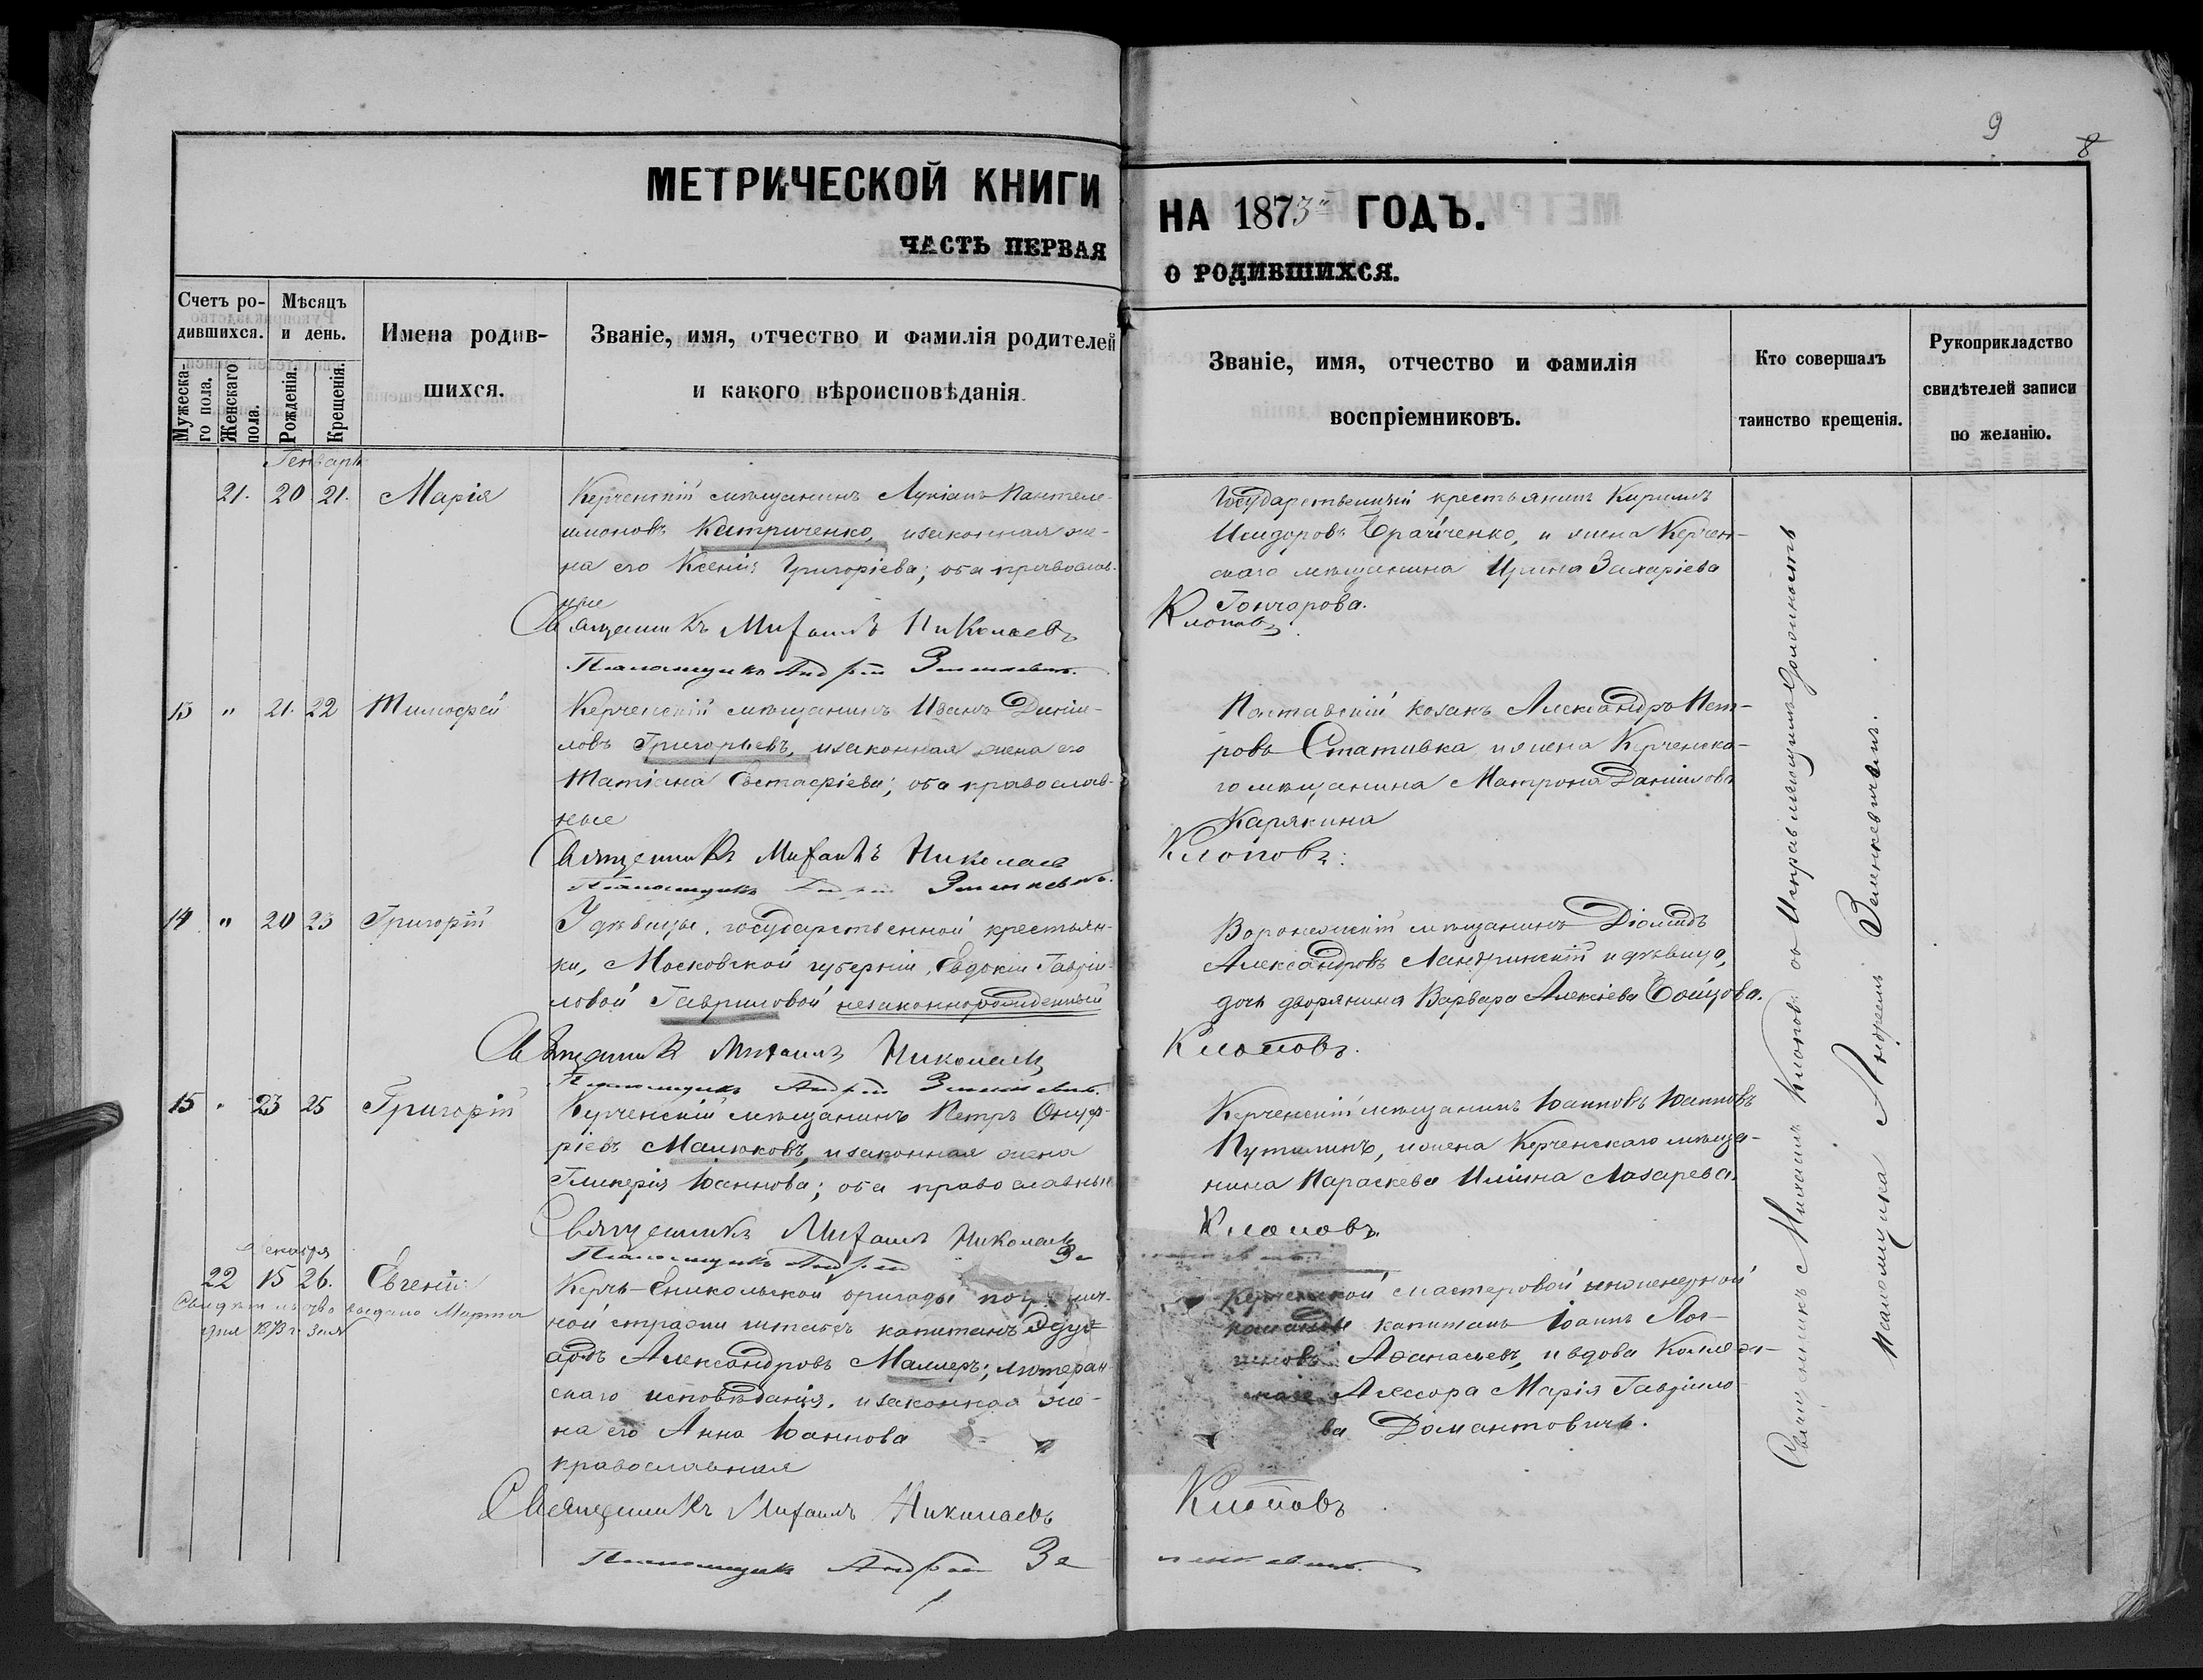 9
8
МЕТРИЧЕСКОЙ КНИГИ
НА 1873й ГОДЪ.
ЧАСТЬ ПЕРВАЯ
О РОДИВШИХСЯ.
Счетъ ро-
дившихся.
Мужеска-
го пола.
Женскаго
пола.
Мѣсяцъ
и день.
Рожденія.
Крещенія.
Имена родив-
шихся.
Званіе, имя, отчество и фамилія родителей
и какого вѣроисповѣданія.
Званіе, имя, отчество и фамилія
воспріемниковъ.
Кто совершалъ
таинство крещенія.
Рукоприкладство
свидѣтелей записи
по желанію.
Генварь
21. 20 21. Марія
Керченскій мѣщанинъ Лукіанъ Пантеле-
имоновъ Кастриченко, и законная же-
на его Ксенія Григоріева; оба православ-
ные
Священникъ Михаилъ Николаевъ
Псаломщикъ Андрей Зеленкевичъ.
Государственный крестьянинъ Кириллъ
Исидоровъ, и жена Керчен-
скаго мѣщанина Ирина Захаріева
Гончарова.
Клоповъ.
13 " 21. 22 Тимофей
Керченскій мѣщанинъ Иванъ Даніи-
ловъ Григорьевъ, и законная жена его
Татіана Евстафіева; оба православ-
ные
Священникъ Михаилъ Николаевъ
Псаломщикъ Андрей Зеленкевичъ.
Полтавскій козакъ Александръ Пет-
ровъ Стативка и жена Керченска-
го мѣщанина Матрона Даніилова
Карякина
Клоповъ.
14 " 20 23 Григорій
У дѣвицы, государственной крестьян-
ки, Московской губерніи, Евдокіи Гаврiи-
ловой Гавриловой незаконнорожденный
Священникъ Михаилъ Николаевъ
Псаломщикъ Андрей Зеленкевичъ.
Воронежскій мѣщанинъ Діомидъ
Александровъ и дѣвица,
дочь дворянина Варвара Алексіева
Клоповъ.
15 " 23 25 Григорій
Керченскій мѣщанинъ Петръ Онуф-
ріевъ Малюковъ, и законная жена
Гликерія Іоаннова; оба православные
Священникъ Михаилъ Николаевъ
Псаломщикъ Андрей Зе
Керченскій мѣщанинъ Іоанновъ Іоанновъ
Путилинъ, и жена Керченскаго мѣща-
нина Параскева Ильина Лазарева.
Клоповъ.
Декабря
22 15 26. Евгеній
Свидѣтельство выдано Марта
дня 1873 г. за №
Керчь-Еникольской бригады погранич-
ной стражи штабсъ капитанъ Эду-
ардъ Александровъ Маллеръ; лютеран-
скаго исповѣданія, и законная же-
на его Анна Іоаннова
православная
Священникъ Михаилъ Николаевъ
Псаломщикъ Андрей Зе
Керченской мастеровой инженерной
команды капитанъ Іоаннъ Лог-
гиновъ Аѳанасьевъ, и вдова Коллеж-
скаго Асессора Марія Гавріило-
ва Домантовичъ.
Клоповъ
ленкевичъ.
Священникъ Михаилъ Клоповъ съ исправляющимъ должность
псаломщика Андреемъ Зеленкевичемъ.